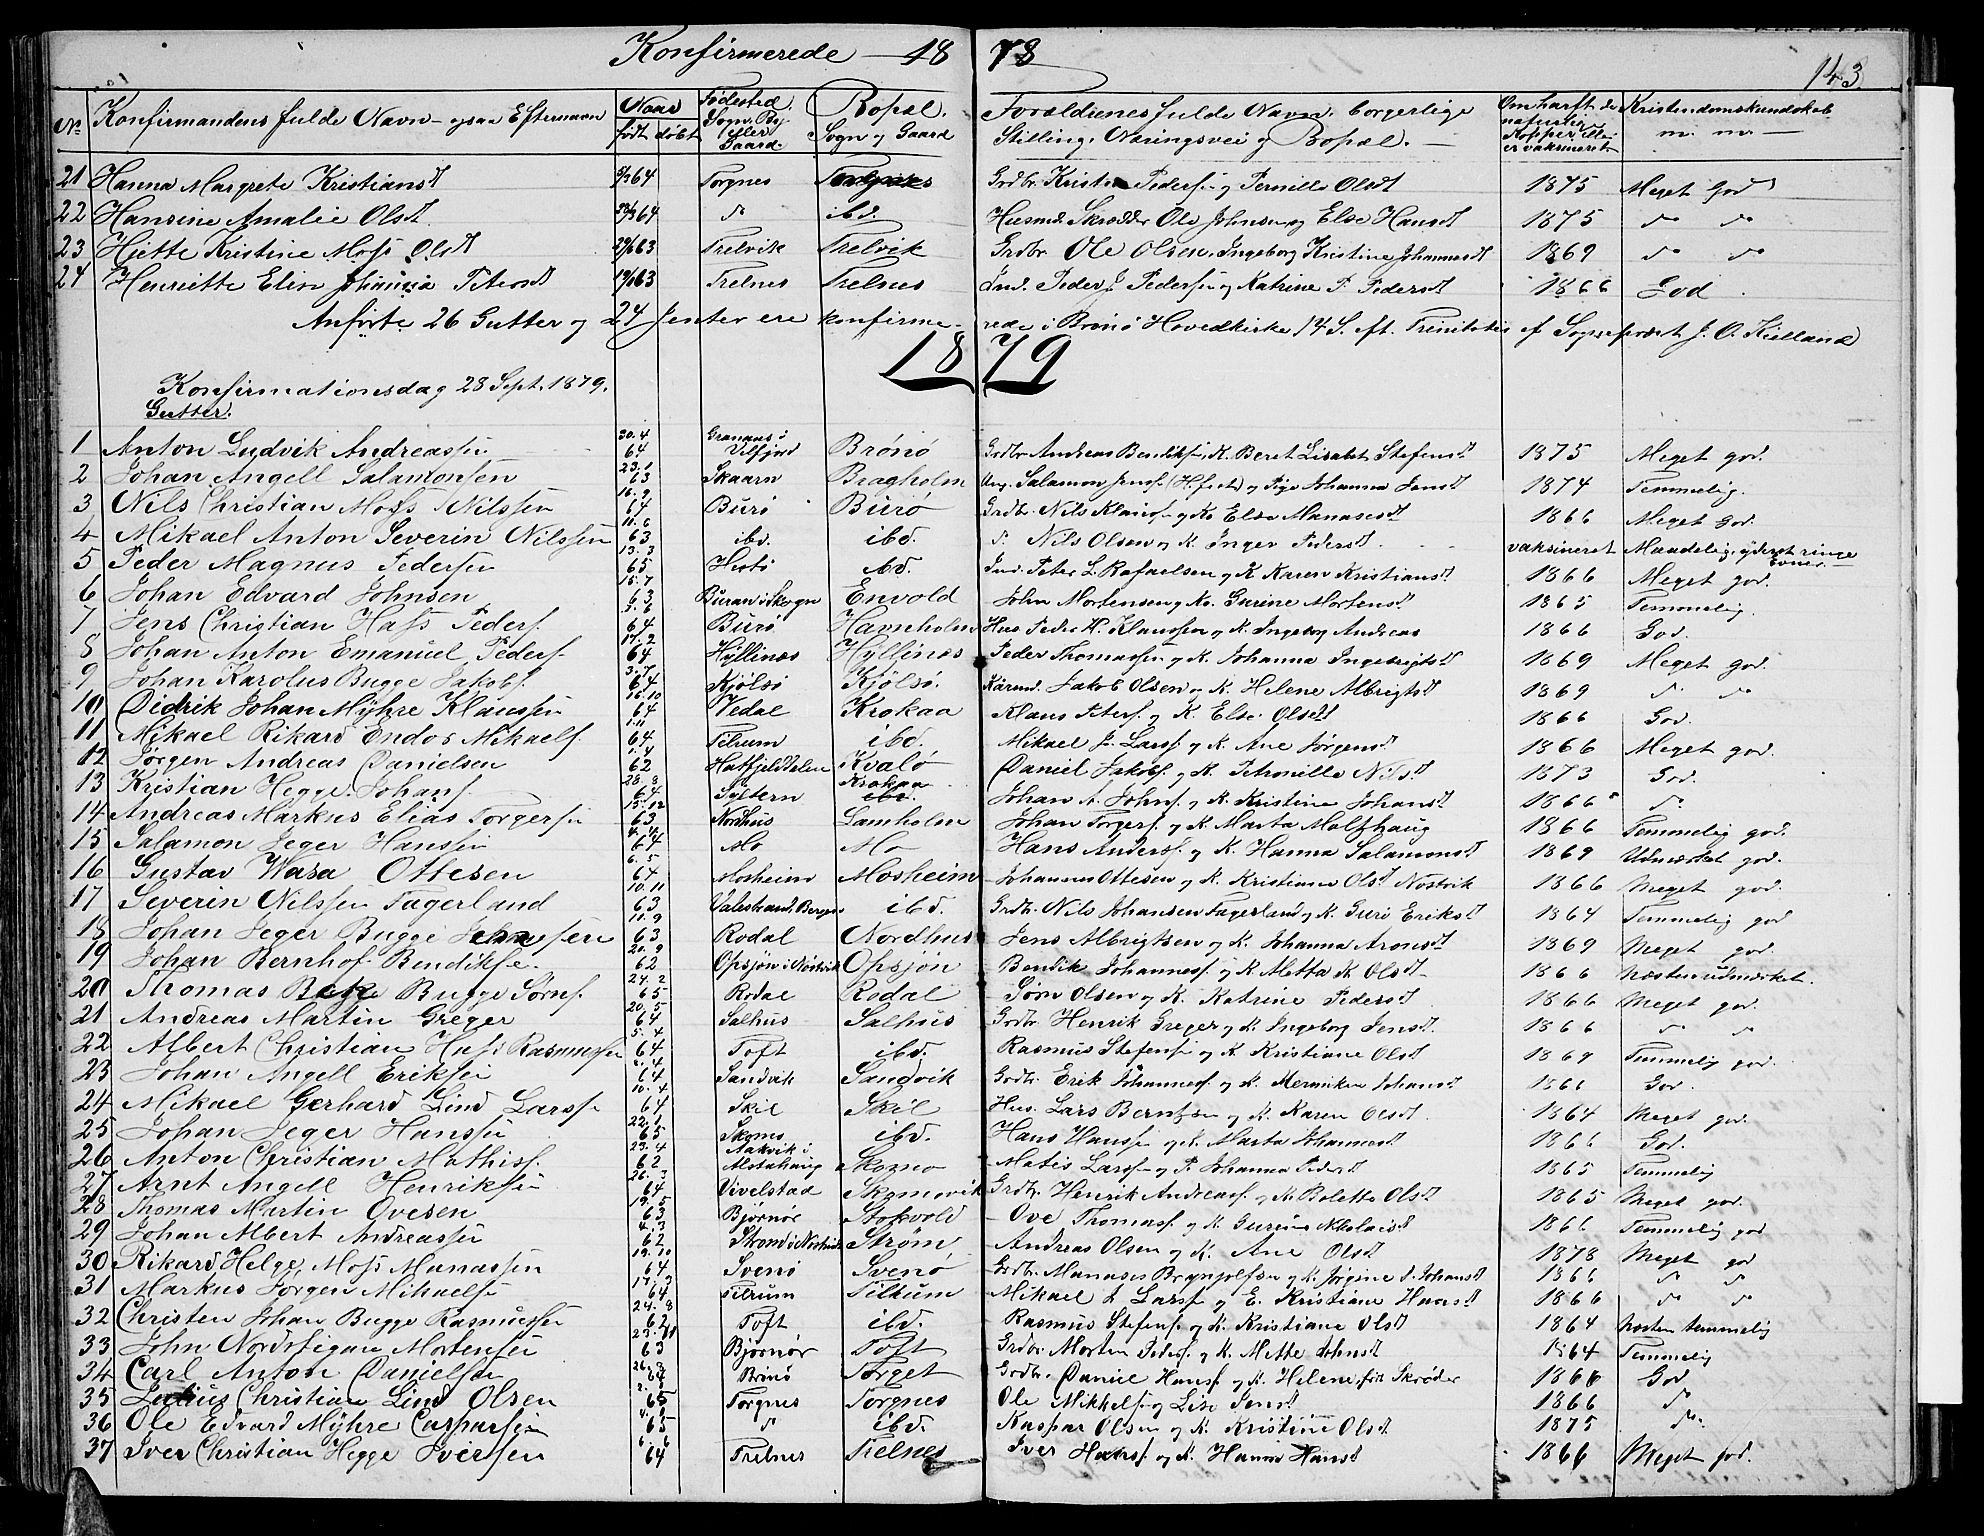 Konfirmerede 18 78
143
No Konfirmandens fulde Navn ogsaa Efternavn Naar født døbt Fødested. Sogn, By eller Gaard. Bopæl. Sogn og Gaard Forældrenes fulde Navn, borgerlige Stilling, Næringsvei og Bopæl. Om havft de naturlige Kopper eller er vaksineret Kristendomskundskab m. m.
21 Hanna Margrete Kristiansdt 64 Torgnes Torgnes Grdbr. Kristen Pedersen og Pernille Olsdt 1875 Meget God
22 Hansine Amalie Olsdt 64 do ibd. Husmd Skrædder Ole Johnsen og Else Hansdt 1875 do do
23 Hjette Kristine Moss Olsdt 63 Trelvik Trelvik Grdbr. Ole Olsen, Ingeborg Kristine Johannesdt 1869 do do
24 Henriette Elise Johanna Petersdt 63 Trelnes Trelnes Ind. Peder J. Pedersen og Katrine P. Pedersdt 1866 God
Anførte 26 Gutter og 24 Jenter ere konfirmerede i Brønø Hovedkirke 14 S. eft. Trinitatis af Sogneprest J. O. Kielland
18 79
Konfirmationsdag 28 Sept. 1879.
Gutter.
1 Anton Ludvik Andreassen 30.4 64 Granaas i Vilfjord Brønø Grdbr. Andreas Bendiks, K. Beret Lisabet Stefensdt 1875 Meget god.
2 Johan Angell Salamonsen 23.1 63 Skaarn Bragholm Ung. Salamon Jens. og Pige Johanna Jensdt 1874 Temmelig.
3 Nils Christian Moss Nilssen 16.9 64 Burø Burø Grdbr. Nils Klauss. og Ko Else Manasesdt 1866 Meget God.
4 Mikael Anton Severin Nilssen 11.6 63 ibd. ibd. do Nils Olsen og K. Inger Pedersdt vaksineret Maadelig, yderst ringe Evner.
5 Peder Magnus Pedersen 13.3 65 Hestø ibd. Ind. Peter L. Rafaelsen og K Karen Kristiansdt 1866 Meget god.
6 Johan Edvard Johnsen 15.7 63 Buran i Skogn Envold John Mortensen og Ko. Gurine Mortensdt 1865 Temmelig.
7 Jens Christian Hass Peders. 5.6 64 Burø Havnholm Hus. Peder H. Klaussen og K. Ingeborg Andreas 1866 God.
8 Johan Anton Emanuel Peders. 17.2 64 Hyllinæs Hyllinæs Peder Thomassen og K. Johanna Ingebrigtsdt 1869 Meget god.
9 Johan Karolus Bugge Jakobs. 3.7 64 Kjølsø Kjølsø. Jakob Olsen og K. Helene Albrigtsdt 1869 do do
10 Didrik Johan Myhre Klaussen 16.10 64 Vedal Krokaa Klaus Peters. og K. Else Olsdt 1866 God.
11 Mikael Rikard Endos Mikaels. 1.11 64 Tilrum ibd. Mikael J. Larss. og K. Ane Jørgensdt 1866 Meget god.
12 Jørgen Andreas Danielsen 1.4 62 Hatfjelddalen Kvalø Daniel Jakobs. og K. Petronille Nilsdt 1873 God.
13 Kristian Hegge Johans. 28.8 64 Systern Krokaa Johan A. Johns. og K. Kristine Johansdt 1866 do
14 Andreas Markus Elias Torgersen 15.12 63 Nordhus Lamholm Johan Torgers. og K. Marta Moltzhaug 1866 Temmelig god.
15 Salamon Jeger Hanssen 4.4 64 Mo Mo Hans Anderss. og K. Hanna Salamonsdt 1869 Udmærket god.
16 Gustav Wasa Ottesen 6.5 64 Mosheim Mosheim Johannes Ottesen og K. Kristiane Olsdt Nøstvik 1866 Meget god.
17 Severin Nilssen Fagerland 10.11 63 Valestrand, Bergen ibd. Grdbr. Nils Johansen Fagerland og K. Guri Eriksdt 1864 Temmelig god
18 Johan Jeger Bugge Jenssen 11.9 63 Rodal Nordhus Jens Albrigtsen og K. Johanna Aronsdt 1869 Meget god.
19 Johan Bernhof Bendikse. 20.9 62 Opsjøn i Nøstvik Opsjøn Bendik Johanness. og K Metta K Olsdt 1866 Næsten udmærket.
20 Thomas Beke Bugge Sørns. 24.2 65 Rodal Rodal Sørn Olsen og K. Katrine Pedersdt 1866 Meget god.
21 Andreas Martin Greger 20.5 64 Salhus Salhus Grdbr. Henrik Greger og K. Ingeborg Jensdt. 1866 do do
22 Albert Christian Hass Rasmussen 5.4 64 Toft ibd. Rasmus Stefens. og K. Kristiane Olsdt 1869 Temmelig god.
23 Johan Angell Eriksen 2.4 64 Sandvik Sandvik Grdbr. Erik Johannes. og K. Mernike Johansdt 1866 God.
24 Mikael Gerhard Lind Larss. 10.4 64 Skil Skil Hus. Lars Berntzen og K. Karen Olsdt 1864 Meget god.
25 Johan Jeger Hanssen 22.1 65 Skomo ibd. Hans Hanss. og K. Marta Johannesdt 1866 God.
26 Anton Christian Mathiss. 23.4 62 Aakvik i Alstahaug Skomo Matis Larss. og P. Johanna Pedersdt 1865 Temmelig
27 Arnt Angell Henriksen 26.3 64 Vivelstad Skomovik Grdbr. Henrik Andreass. og K Bolette Olsdt 1865 Meget god.
28 Thomas Martin Ovesen 19.5 63 Bjørnør Stokvold Ove Thomass. og K. Gurine Nikolaisdt 1866 Temmelig god
29 Johan Albert Andreassen 4.3 62 Strøm i Nøstvik Strøm Andreas Olsen og K. Ane Olsdt 1878 Meget god
30 Rikard Helge Moss Manassen 19.10 64 Svenø Svenø Grdbr. Manases Brynjolfsen og K. Jørgine J. Johansdt 1866 do do
31 Markus Jørgen Mikaelse 17.3 64 Tilrum Tilrum Mikael J Larss. og E. Kristiane Hansdt 1866 do do
32 Christen Johan Bugge Rasmussen 24.8 62 Toft ibd. Rasmus Stefens. og K. Kristiane Olsdt 1864 Næsten temmelig
33 John Nordstigan Mortensen 23.11 63 Bjørnør Toft Grdbr. Morten Peders. og K. Mette Johnsdt 1864 Temmelig
34 Carl Anton Danielsen Brønø Torget Grdbr. Daniel Hanss. og K. Helene, født Skrøder 1866 God
35 Julius Christian Lind Olsen 65 Torgnes Torgnes Ole Mikkels. og Lise Jensdt 1866 do
36 Ole Edvard Myhre Casparsen 65 do ibd. Kaspar Olsen og K. Kristine Olsdt 1875 do
37 Iver Christian Hegge Iversen 64 Trelnes Trelnes Iver Hanss. og K. Hanna Hansdt 1866 Meget god.